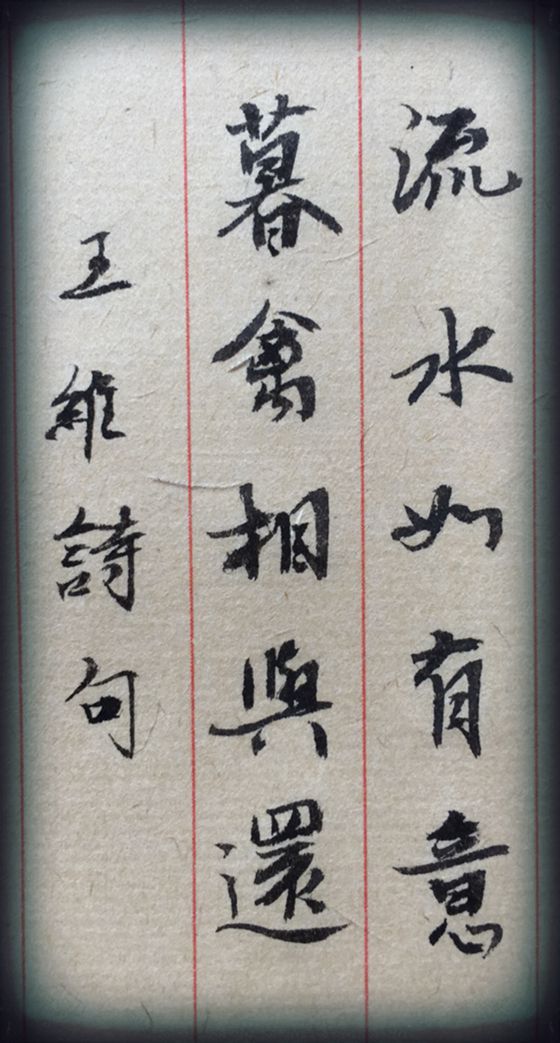 流水如有意
暮禽相與還
王維詩句